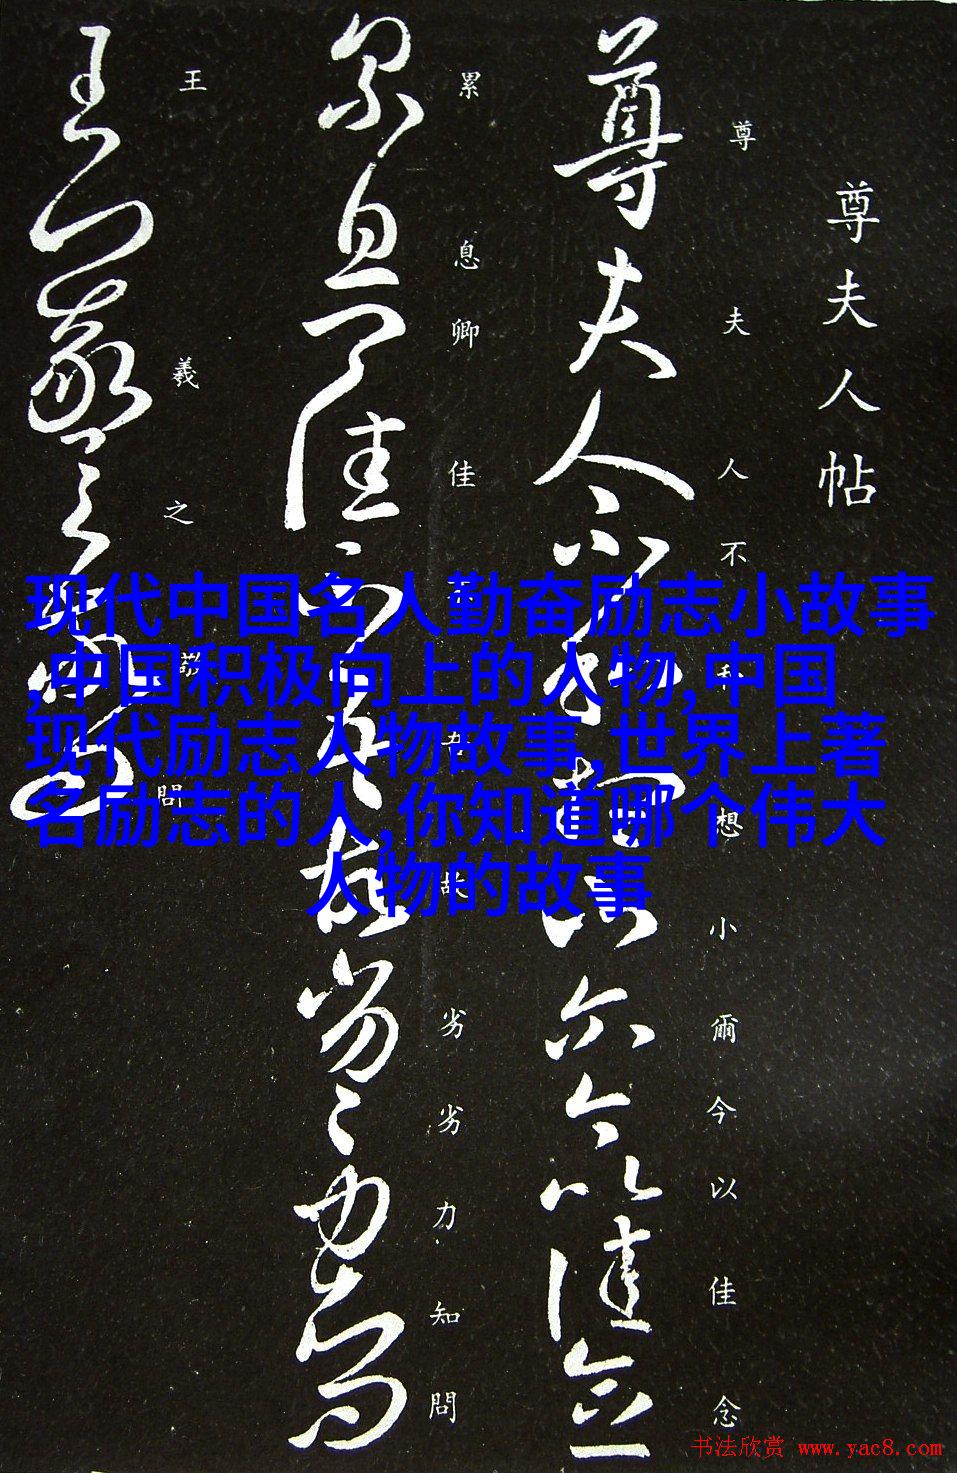 尊夫人帖
尊夫人不和想小爾今以佳念
累息卿佳不
故劣劣力知問
王羲之敬問
现代中国名人勤奋励志小故事
,中国积极向上的人物,中国
现代励志人物故事,世界上著
名励志的人,你知道哪个伟大
人物的故事
书法欣赏 www.yac8.com